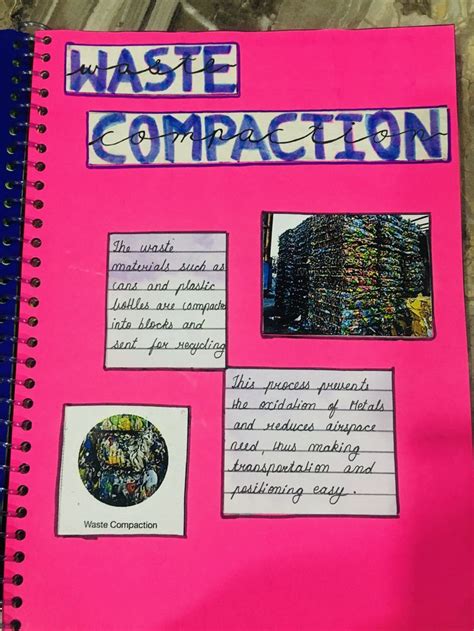 WASTE
waste
COMPACTION
compaction
The waste
materials such as
cans and plastic
bottles are compacted
into blocks and
sent for recycling
This process prevents
the oxidation of Metals
and reduces airspace
need, thus making
transportation and
positioning easy.
Waste Compaction